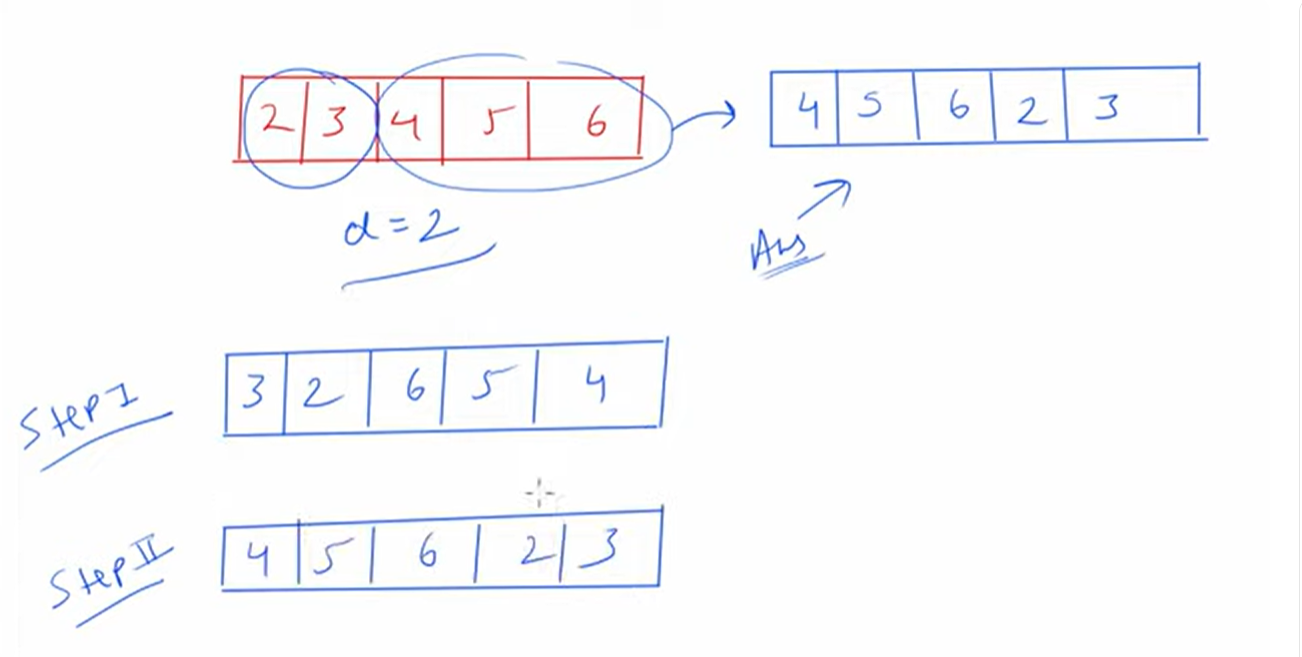 2 3 4 5 6
4 5 6 2 3
d = 2
Ans
Step I
3 2 6 5 4
Step II
4 5 6 2 3